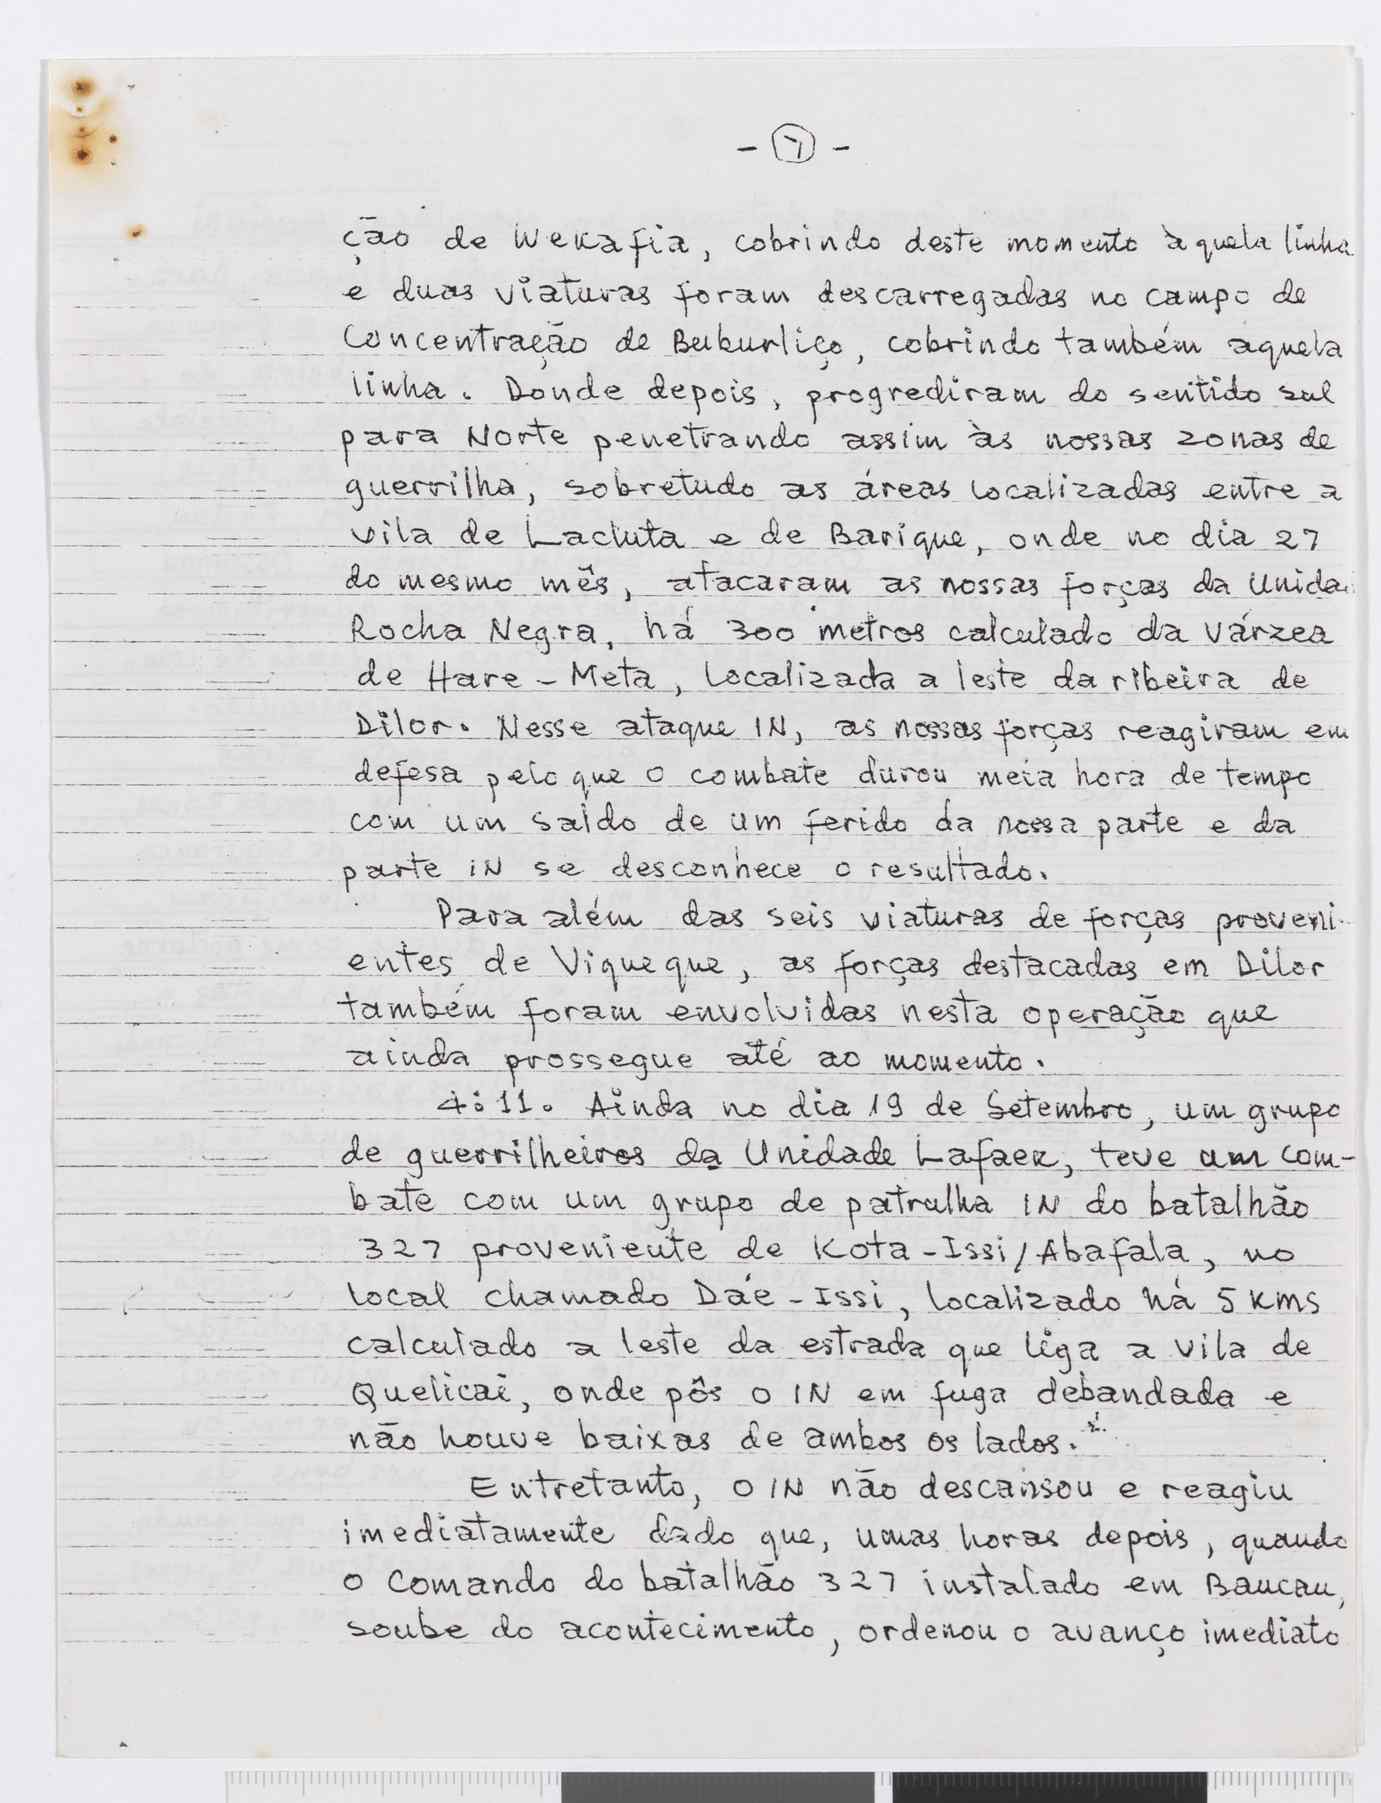 - 7 -
ção de Wekafia, cobrindo deste momento àquela linha
e duas viaturas foram descarregadas no campo de
Concentração de Buburliço, cobrindo também aquela
linha. Donde depois, progrediram do sentido sul
para Norte penetrando assim às nossas zonas de
guerrilha, sobretudo as áreas localizadas entre a
vila de Lacluta e de Barique, onde no dia 27
do mesmo mês, atacaram as nossas forças da Unida
Rocha Negra, há 300 metros calculado da várzea
de Hare-Meta, localizada a leste da ribeira de
Dilor. Nesse ataque IN, as nossas forças reagiram em
defesa pelo que o combate durou meia hora de tempo
com um saldo de um ferido da nossa parte e da
parte iN se desconhece o resultado.
Para além das seis viaturas de forças proveni-
entes de Viqueque, as forças destacadas em Dilor
também foram envolvidas nesta operação que
ainda prossegue até ao momento.
4:11. Ainda no dia 19 de Setembro, um grupo
de guerrilheiros da Unidade Lafaek, teve um com-
bate com um grupo de patrulha IN do batalhão
327 proveniente de Kota-Issi/Abafala, no
local chamado Dáe-Issi, localizado há 5 kms
calculado a leste da estrada que liga a vila de
Quelicai, onde pôs o IN em fuga debandada e
não houve baixas de ambos os lados.
Entretanto, o IN não descansou e reagiu
imediatamente dado que, umas horas depois, quando
o Comando do batalhão 327 instalado em Baucau,
soube do acontecimento, ordenou o avanço imediato